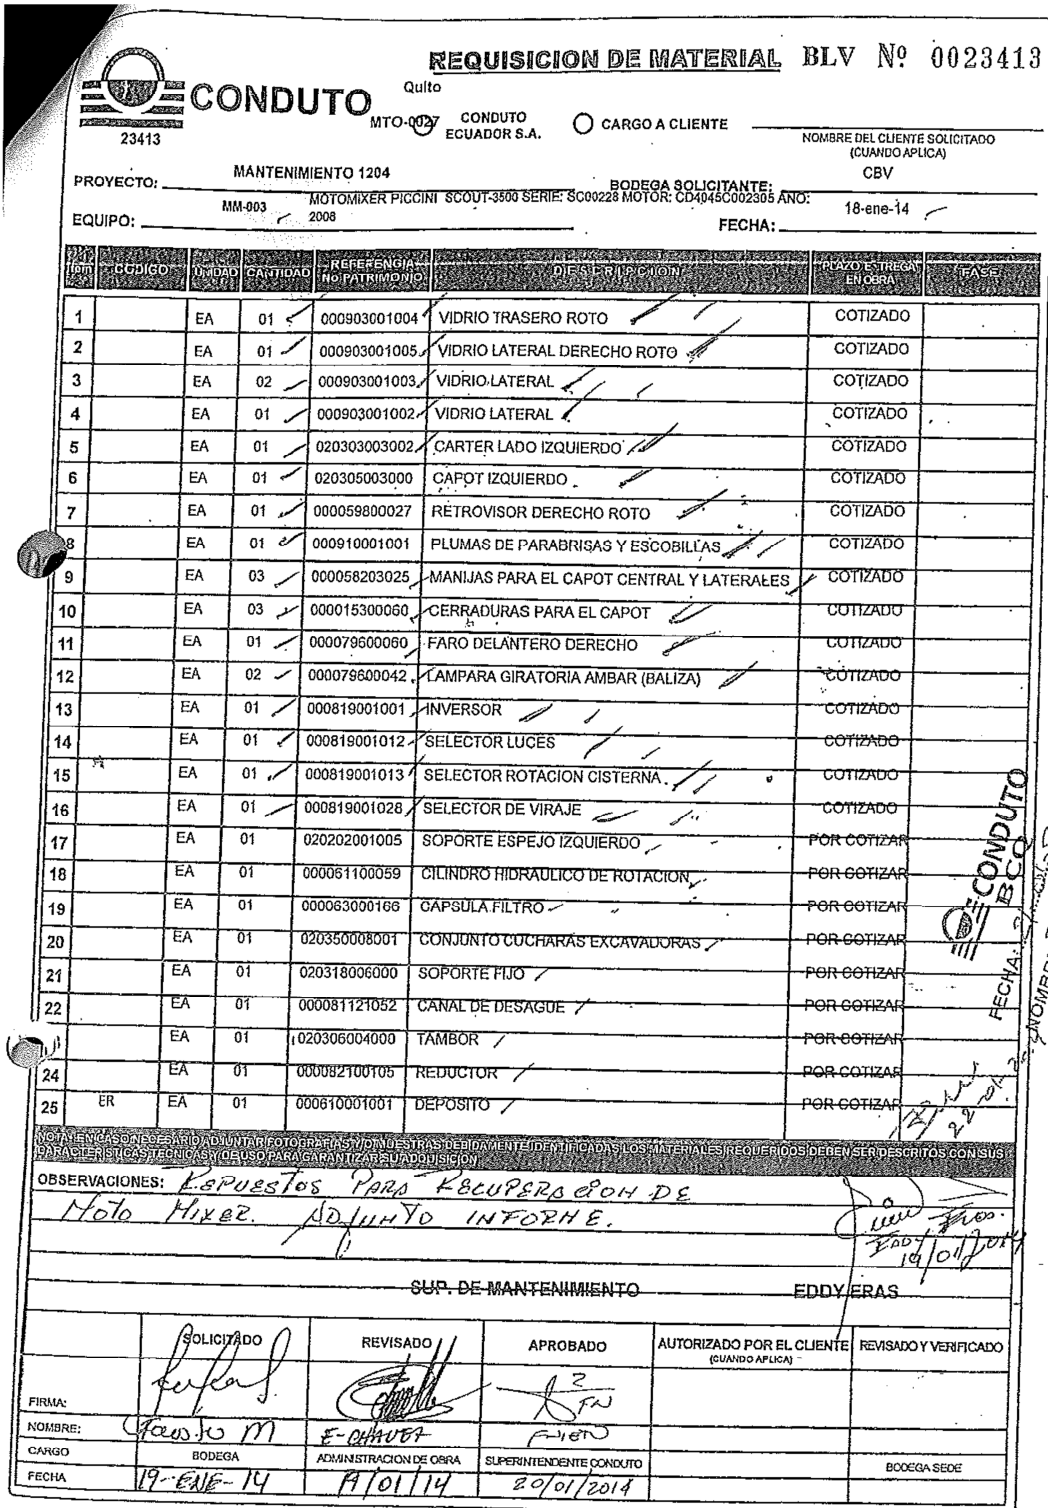 REQUISICION DE MATERIAL BLV Nº 0023413
CONDUTO
23413
Quito
MTO-0027 CONDUTO ECUADOR S.A.
CARGO A CLIENTE
NOMBRE DEL CLIENTE SOLICITADO
(CUANDO APLICA)
PROYECTO: MANTENIMIENTO 1204
BODEGA SOLICITANTE: CBV
EQUIPO: MM-003 MOTOMIXER PICCINI SCOUT-3500 SERIE: SC00228 MOTOR: CD4045C002305 AÑO: 2008
FECHA: 18-ene-14
Item CODIGO UNIDAD CANTIDAD REFERENCIA No PATRIMONIO DESCRIPCION PLAZO ETREGA EN OBRA FASE
1 EA 01 000903001004 VIDRIO TRASERO ROTO COTIZADO
2 EA 01 000903001005 VIDRIO LATERAL DERECHO ROTO COTIZADO
3 EA 02 000903001003 VIDRIO LATERAL COTIZADO
4 EA 01 000903001002 VIDRIO LATERAL COTIZADO
5 EA 01 020303003002 CARTER LADO IZQUIERDO COTIZADO
6 EA 01 020305003000 CAPOT IZQUIERDO COTIZADO
7 EA 01 000059800027 RETROVISOR DERECHO ROTO COTIZADO
8 EA 01 000910001001 PLUMAS DE PARABRISAS Y ESCOBILLAS COTIZADO
9 EA 03 000058203025 MANIJAS PARA EL CAPOT CENTRAL Y LATERALES COTIZADO
10 EA 03 000015300060 CERRADURAS PARA EL CAPOT COTIZADO
11 EA 01 000079600060 FARO DELANTERO DERECHO COTIZADO
12 EA 02 000079600042 LAMPARA GIRATORIA AMBAR (BALIZA) COTIZADO
13 EA 01 000819001001 INVERSOR COTIZADO
14 EA 01 000819001012 SELECTOR LUCES COTIZADO
15 EA 01 000819001013 SELECTOR ROTACION CISTERNA COTIZADO
16 EA 01 000819001028 SELECTOR DE VIRAJE COTIZADO
17 EA 01 020202001005 SOPORTE ESPEJO IZQUIERDO POR COTIZAR
18 EA 01 000061100059 CILINDRO HIDRAULICO DE ROTACION POR COTIZAR
19 EA 01 000063000166 CAPSULA FILTRO POR COTIZAR
20 EA 01 020350008001 CONJUNTO CUCHARAS EXCAVADORAS POR COTIZAR
21 EA 01 020318006000 SOPORTE FIJO POR COTIZAR
22 EA 01 000081121052 CANAL DE DESAGUE POR COTIZAR
EA 01 020306004000 TAMBOR POR COTIZAR
24 EA 01 000082100105 REDUCTOR POR COTIZAR
25 ER EA 01 000610001001 DEPOSITO POR COTIZAR
CONDUTO
BCQ
FECHA:
NOMBRE:
NOTA: EN CASO NECESARIO ADJUNTAR FOTOGRAFIAS Y/O MUESTRAS DEBIDAMENTE IDENTIFICADAS LOS MATERIALES REQUERIDOS DEBEN SER DESCRITOS CON SUS
CARACTERISTICAS TECNICAS Y DE USO PARA GARANTIZAR SU ADQUISICION
OBSERVACIONES: REPUESTOS PARA RECUPERACION DE
MOTO MIXER. ADJUNTO INFORME.
Eddy Eras.
19/01/2014
SUP. DE MANTENIMIENTO EDDY ERAS
SOLICITADO REVISADO APROBADO AUTORIZADO POR EL CLIENTE REVISADO Y VERIFICADO
(CUANDO APLICA)
FIRMA:
NOMBRE: Fausto M E-CHAVEZ F-NIETO
CARGO BODEGA ADMINISTRACION DE OBRA SUPERINTENDENTE CONDUTO BODEGA SEDE
FECHA 19-ENE-14 19/01/14 20/01/2014